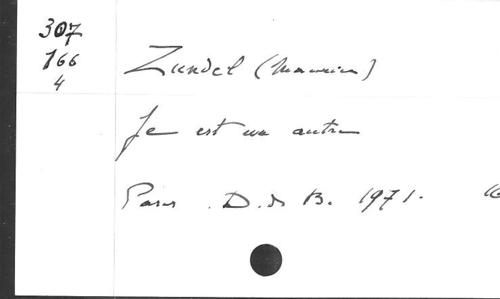 307
166
4
Zundel (Maurice)
Je est un autre
Paris. D. d B. 1971. 16